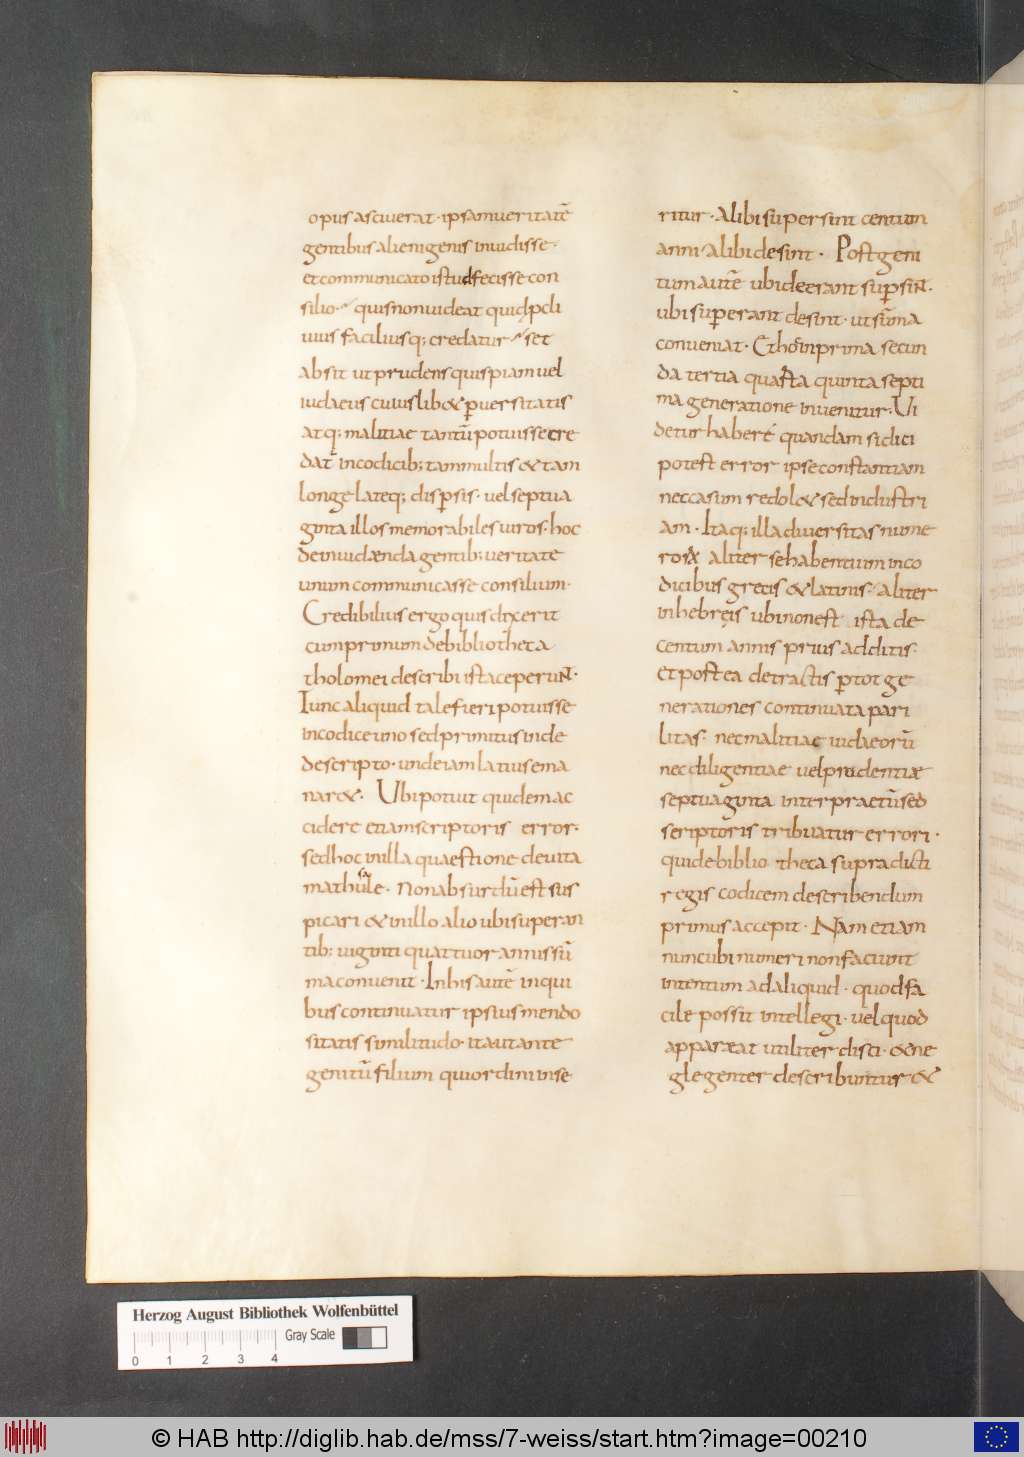 opus asciuerat · ipsam ueritatē
gentibus alienigenis inuidisse ·
et communicato istud fecisse con
silio · quis non uideat quid ꝓcli
uius facilius q; credatur set
absit ut prudens quispiam uel
iudaeus cuiuslib& ꝑuersitatis
atq; malitiae tantū potuisse cre
dat̄ in codicib; tam multis & tam
longe lateq; disꝑsis · uel septua
ginta illos memorabiles uiros · hoc
de inuidænda gentib; ueritate
unum communicasse consilium ·
Credibilius ergo quis dixerit
cum primum de bibliotheca
tholomei describi ista ceperuɴ̄ ·
Tunc aliquid tale fieri potuisse
in codice uno sed primitus inde
descripto · unde iam latius ema
nar& · Ubi potuit quidem ac
cidere etiam scriptoris error ·
sed hoc in illa quaestione de uita
mathusale · Non absurdū est sus
picari & in illo alio ubi superan
tib; uiginti quattuor annis sū
ma conuenit · In his autē in qui
bus continuatur ipsius mendo
sitatis similitudo · ita ut ante
genitū filium qui ordini inse
ritur · Alibi supersint centum
anni · alibi desint · Post geni
tum autē ubi deerant suꝑsiɴ̄ ·
ubi suꝑerant desint · ut sūma
conueniat · Et hoc in prima secun
da tertia quarta quinta septi
ma generatione inuenitur · Ui
detur habere quandam si dici
potest error ipse constantiam
nec casum redol& sed industri
am · Itaq; illa diuersitas nume
roꝝ aliter se habentium in co
dicibus grecis & latinis · aliter
in hebreis ubi non est ista de
centum annis prius additis ·
et postea detractis ꝑ tot ge
nerationes continuata pari
litas · nec malitiae iudaeorū
nec diligentiae uel prudentiæ
septuaginta interpraetū sed
scriptoris tribuatur errori ·
qui de bibliotheca supra dicti
regis codicem describendum
primus accepit · Nam etiam
nunc ubi numeri non faciunt
intentum ad aliquid · quod fa
cile possit intellegi · uel quod
appareat utiliter disci · & ne
glegenter describuntur &
Herzog August Bibliothek Wolfenbüttel
Gray Scale
0 1 2 3 4
© HAB http://diglib.hab.de/mss/7-weiss/start.htm?image=00210